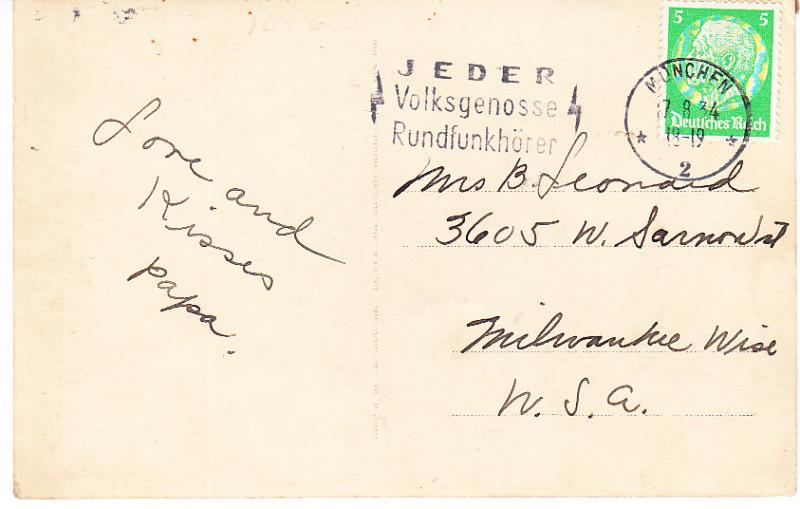 Love and
Kisses
papa.
JEDER
Volksgenosse
Rundfunkhörer
5 5
Deutsches Reich
MÜNCHEN
7.8.34
18-19
2
Mrs B. Leonard
3605 W. Sarnow st
Milwaukee Wisc
U. S. A.